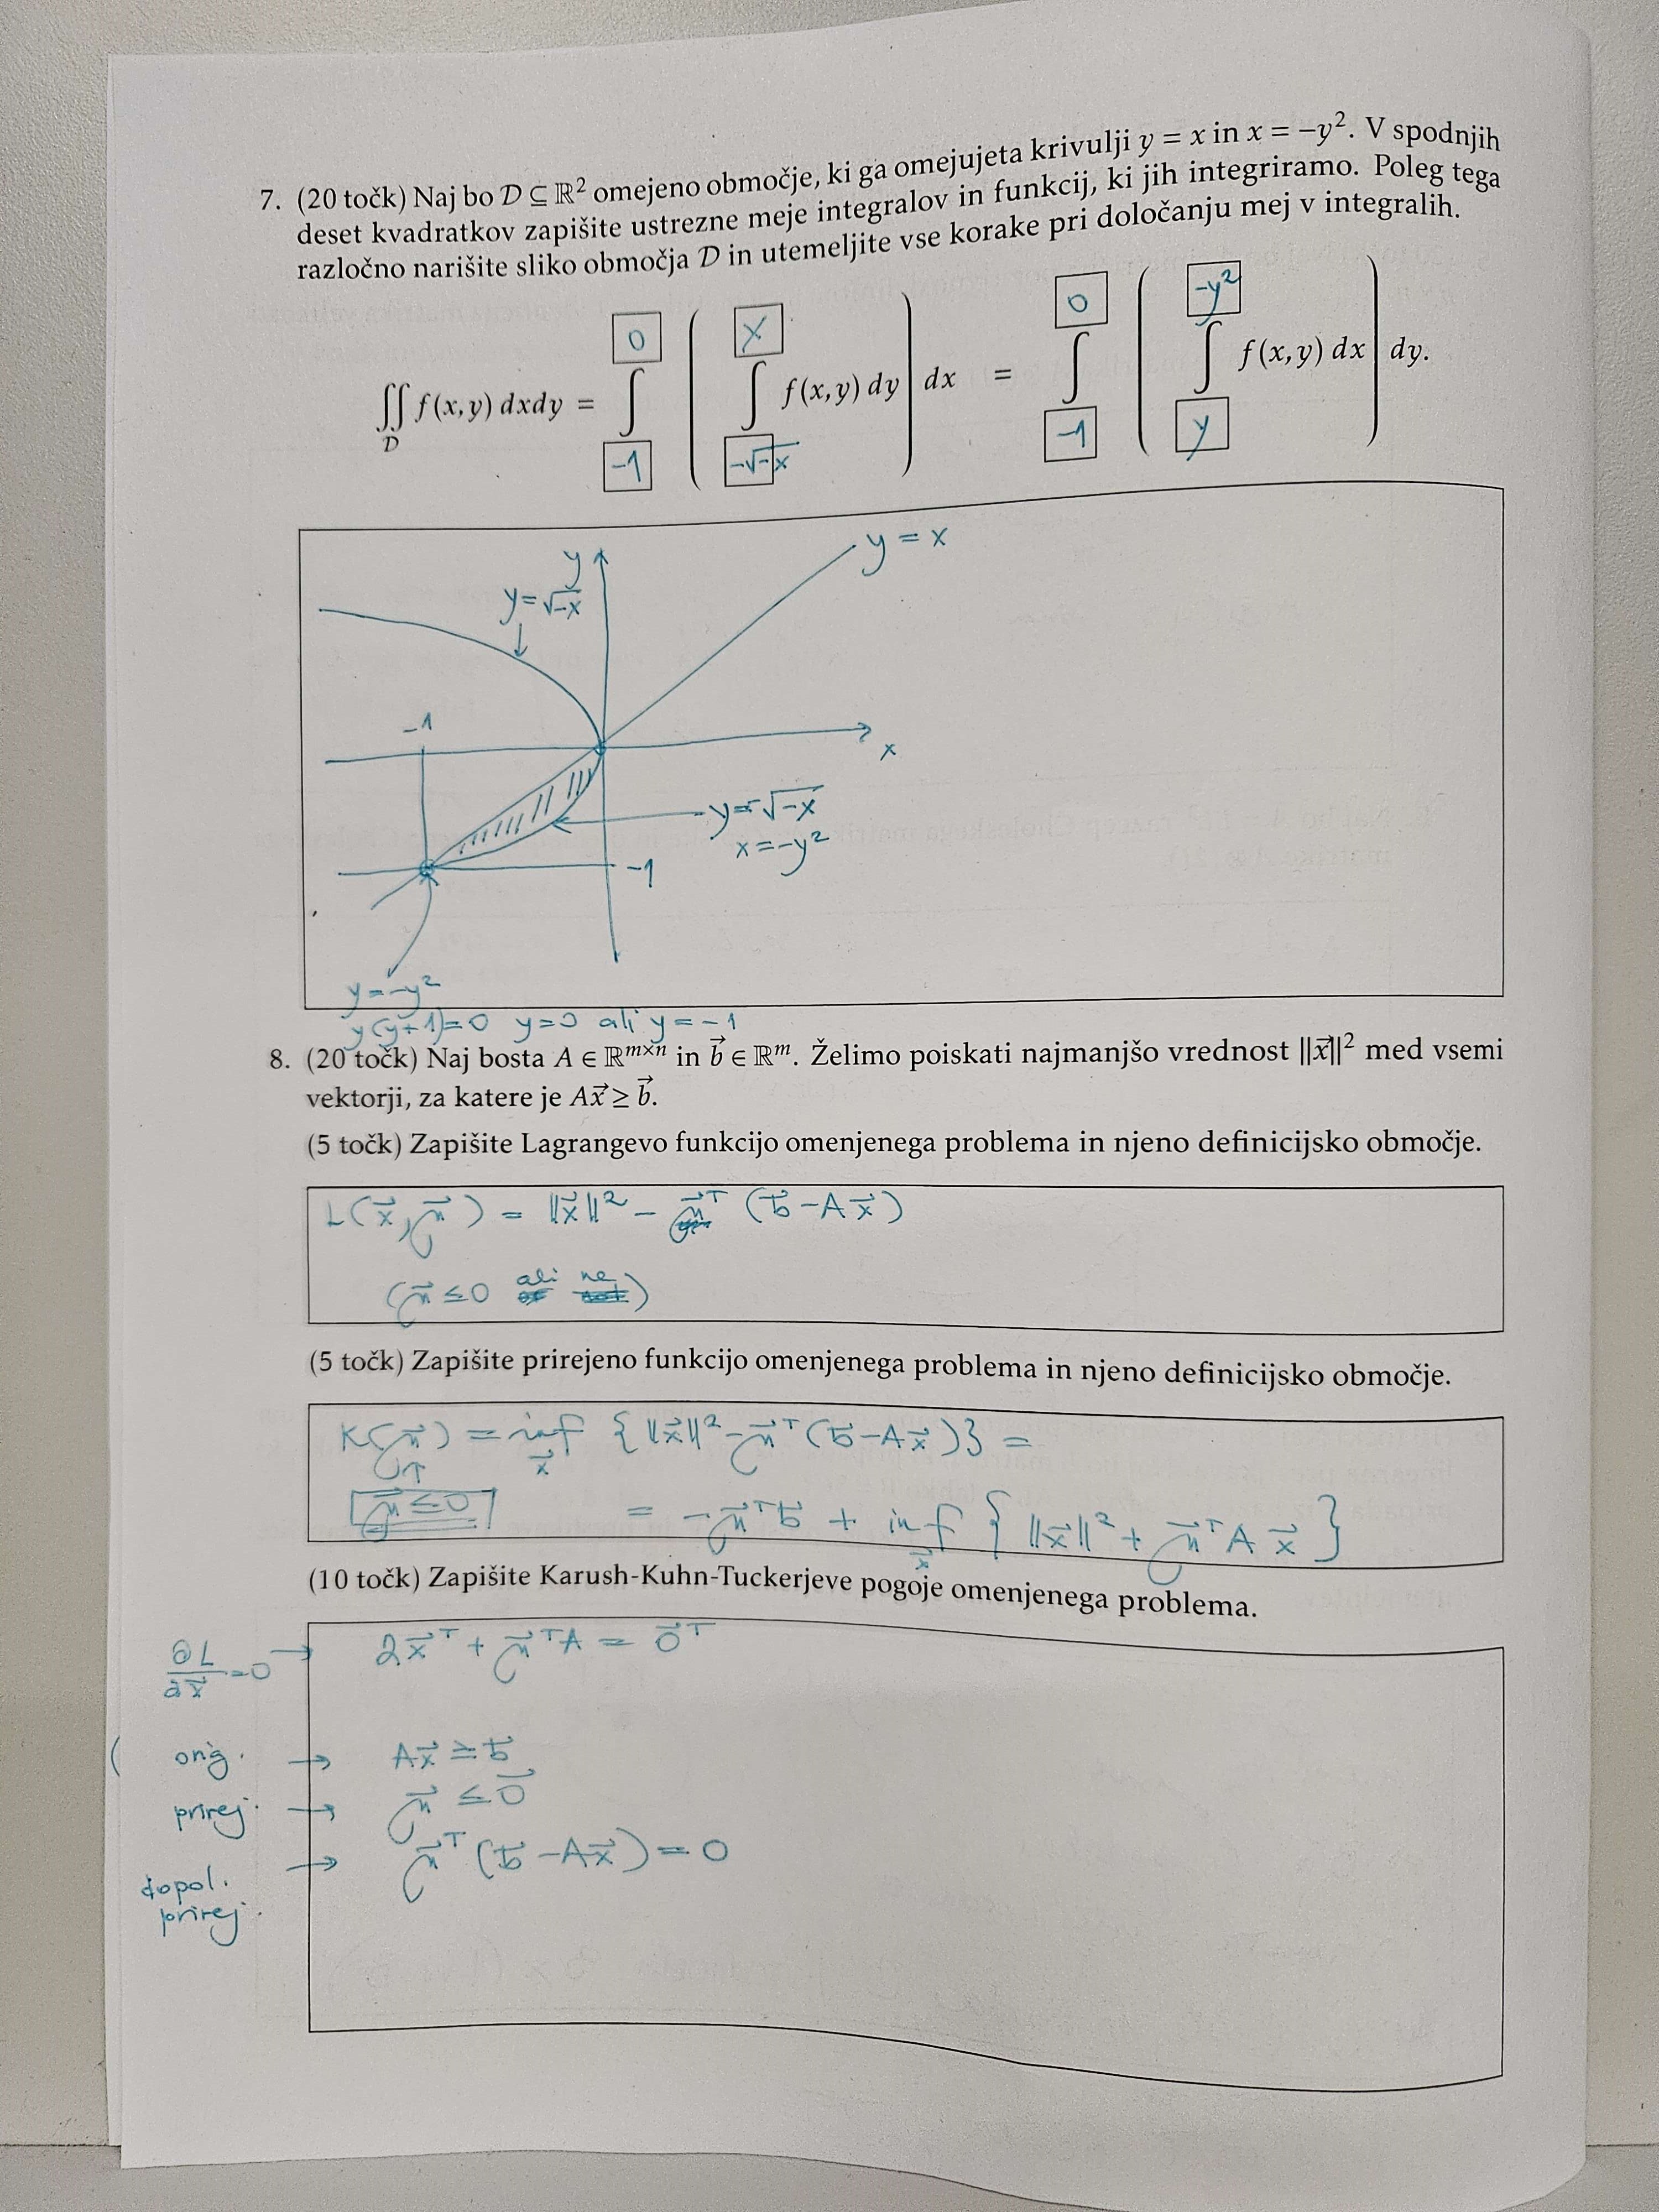 7. (20 točk) Naj bo D ⊆ ℝ² omejeno območje, ki ga omejujeta krivulji y = x in x = −y². V spodnjih
deset kvadratkov zapišite ustrezne meje integralov in funkcij, ki jih integriramo. Poleg tega
razločno narišite sliko območja D in utemeljite vse korake pri določanju mej v integralih.
0 x 0 −y²
∬ f(x,y) dxdy = ∫ ( ∫ f(x,y) dy ) dx = ∫ ( ∫ f(x,y) dx ) dy.
D −1 −√−x −1 y
y = x
y
y=√−x
−1
x
y=−√−x
x=−y²
−1
y=−y²
y(y+1)=0 y=0 ali y=−1
8. (20 točk) Naj bosta A ∈ ℝᵐˣⁿ in b⃗ ∈ ℝᵐ. Želimo poiskati najmanjšo vrednost ||x⃗||² med vsemi
vektorji, za katere je Ax⃗ ≥ b⃗.
(5 točk) Zapišite Lagrangevo funkcijo omenjenega problema in njeno definicijsko območje.
L(x⃗, μ⃗) = ||x⃗||² − μ⃗ᵀ (b⃗ − Ax⃗)
(μ⃗ ≤ 0 ali ne)
(5 točk) Zapišite prirejeno funkcijo omenjenega problema in njeno definicijsko območje.
K(μ⃗) = inf {||x⃗||² − μ⃗ᵀ(b⃗ − Ax⃗)} =
↑ x⃗
μ⃗ ≤ 0 = −μ⃗ᵀb⃗ + inf {||x⃗||² + μ⃗ᵀAx⃗}
x⃗
(10 točk) Zapišite Karush-Kuhn-Tuckerjeve pogoje omenjenega problema.
∂L/∂x⃗ = 0 → 2x⃗ᵀ + μ⃗ᵀA = 0⃗ᵀ
orig. → Ax⃗ ≥ b⃗
prirej. → μ⃗ ≤ 0⃗
dopol. → μ⃗ᵀ(b⃗ − Ax⃗) = 0
prirej.